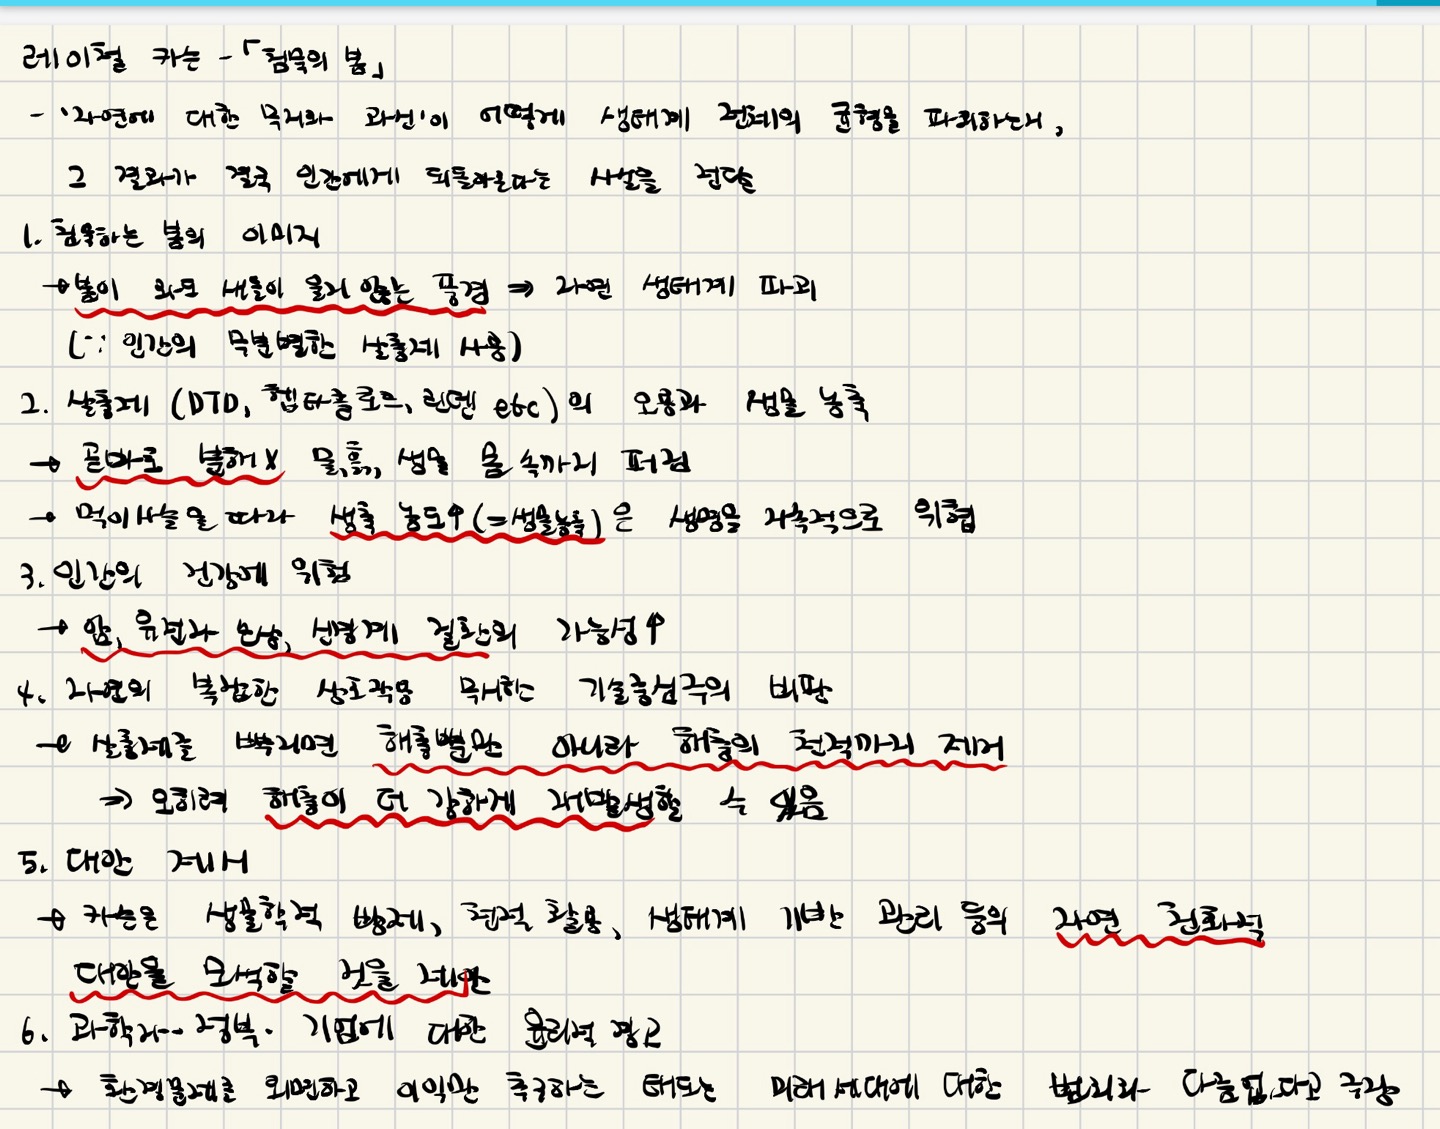 레이첼 카슨 - 「침묵의 봄」
- '자연에 대한 무지와 과신'이 어떻게 생태계 전체의 균형을 파괴하는지,
그 결과가 결국 인간에게 되돌아온다는 사실을 전달
1. 침묵하는 봄의 이미지
→ 봄이 와도 새들이 울지 않는 풍경 ⇒ 자연 생태계 파괴
(∵ 인간의 무분별한 살충제 사용)
2. 살충제 (DTD, 헵타클로르, 린덴 etc)의 오용과 생물 농축
→ 곧바로 분해 X 물, 흙, 생물 몸 속까지 퍼짐
→ 먹이사슬을 따라 생축 농도↑(=생물농축)은 생명을 지속적으로 위협
3. 인간의 건강에 위험
→ 암, 유전자 손상, 신경계 질환의 가능성↑
4. 자연의 복잡한 상호작용 무시한 기술중심주의 비판
→ 살충제를 뿌리면 해충뿐만 아니라 해충의 천적까지 제거
⇒ 오히려 해충이 더 강하게 재발생할 수 있음
5. 대안 제시
→ 카슨은 생물학적 방제, 천적 활용, 생태계 기반 관리 등의 자연 친화적
대안을 모색할 것을 제안
6. 과학자·정부·기업에 대한 윤리적 경고
→ 환경문제를 외면하고 이익만 추구하는 태도는 미래 세대에 대한 범죄와 다름없다고 주장